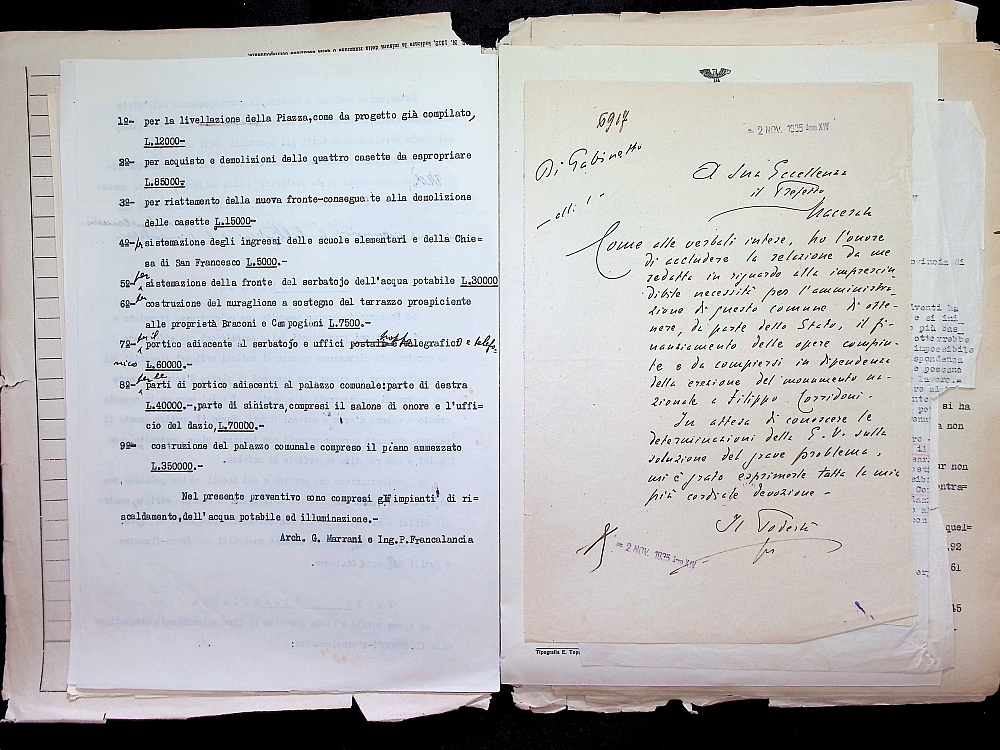 1º- per la livellazione della Piazza,come da progetto già compilato,
L.12000-
2º- per acquisto e demolizioni delle quattro casette da espropriare
L.85000-
3º- per riattamento della nuova fronte-consegue te alla demolizione
delle casette L.15000-
4º- per sistemazione degli ingressi delle scuole elementari e della Chie=
sa di San Francesco L.5000.-
5º- per sistemazione della fronte del serbatojo dell'acqua potabile L.30000
6º- per costruzione del muraglione a sostegno del terrazzo prospiciente
alle proprietà Braconi e Campogioni L.7500.-
7º- per il portico adiacente al serbatojo e uffici telegrafico e telefo-
nico L.60000.-
8º- per le parti di portico adiacenti al palazzo comunale:parte di destra
L.40000.-,parte di sinistra,compresi il salone di onore e l'uffi=
cio del dazio,L.70000.-
9º- costruzione del palazzo comunale compreso il piano ammezzato
L.350000.-
Nel presente preventivo sono compresi gli impianti di ri=
scaldamento,dell'acqua potabile ed illuminazione.-
Arch. G. Marrani e Ing.P.Francalancia
6917
= 2 NOV. 1935 Anno XIV
Di Gabinetto
alli 1
A Sua Eccellenza
il Prefetto
Macerata
Come alle verbali intese, ho l'onore
di accludere la relazione da me
redatta in riguardo alla imprescin
dibile necessità per l'amministra-
zione di questo comune di otte-
nere, da parte dello Stato, il fi-
nanziamento delle opere compiu-
te e da compiersi in dipendenza
della erezione del monumento na-
zionale a Filippo Corridoni.
In attesa di conoscere le
determinazioni della E. V. sulla
soluzione del grave problema,
mi è grato esprimerle tutta la mia
più cordiale devozione -
Il Podestà
= 2 NOV. 1935 Anno XIV
Tipografia E. Top